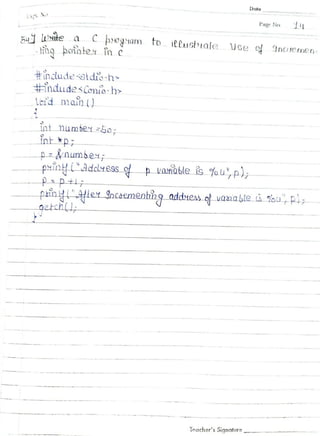 Date
Page No
Page No 14
Write a C program to illustrate Use of Incremen-
ting pointer in C
#include<stdio.h>
#include<conio.h>
void main()
{
int number=50;
int *p;
p = &number;
printf("Address of p variable is %u",p);
p = p+1;
printf("After Incrementing address of variable is %u", p);
getch();
}
Teacher's Signature